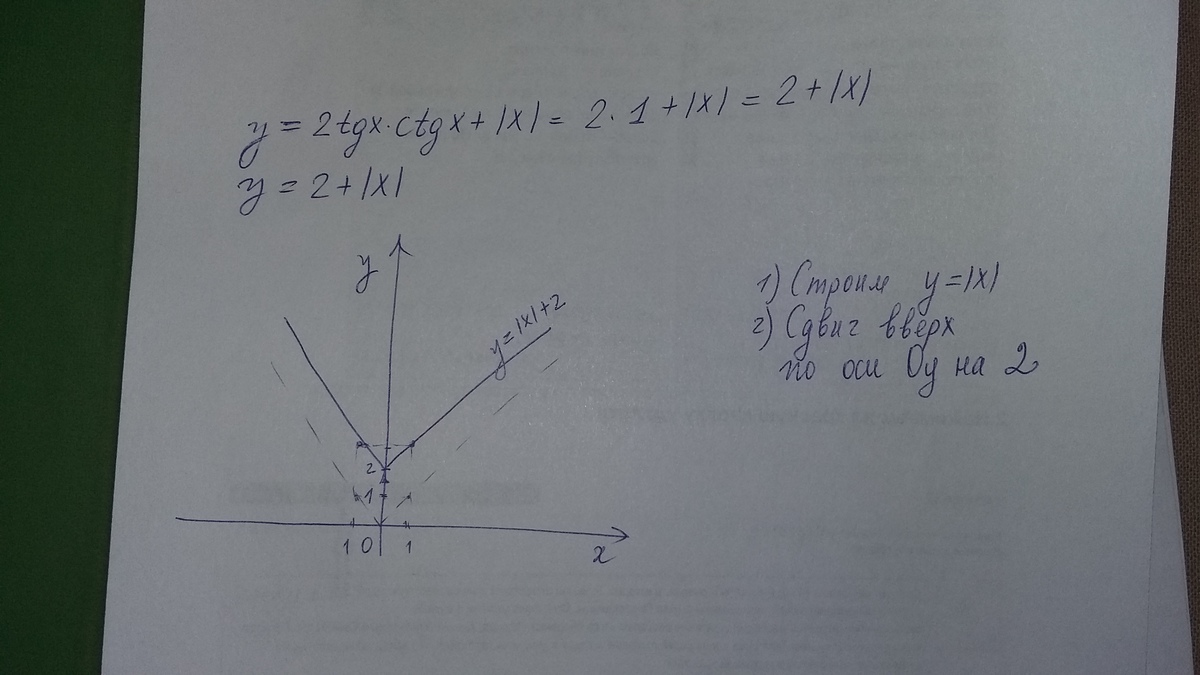 y = 2tgx·ctgx+|x| = 2·1+|x| = 2+|x|
y = 2+|x|
y
y=|x|+2
2
1
1 0 1
x
1) Строим y=|x|
2) Сдвиг вверх
по оси Oy на 2